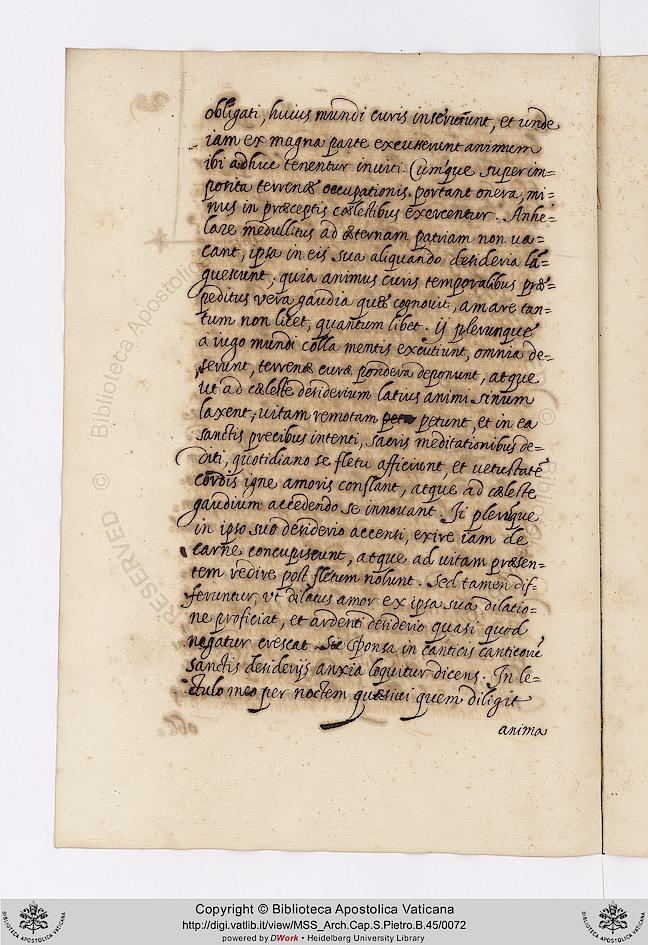 obligati, huius mundi curis inseruiunt, et unde
iam ex magna parte excusserunt animum
ibi adhuc tenentur inuiti. Cumque superim=
posita terrenæ occupationis portant onera, mi=
nus in præceptis cælestibus exercentur. Anhe=
lare medullitus ad æternam patriam non ua=
cant, ipsa in eis sua aliquando desideria lã=
guescunt; quia animus curis temporalibus præ=
peditus vera gaudia quæ cognouit, amare tan=
tum non licet, quantum libet. ij plerunque
a iugo mundi colla mentis excutiunt, omnia de=
serunt, terrenæ curæ pondera deponunt, atque
ut ad cæleste desiderium latius animi sinum
laxent, uitam remotam petunt, et in ea
sanctis precibus intenti, sacris meditationibus de=
diti, quotidiano se fletu afficiunt, et uetustatẽ
cordis igne amoris conflant, atque ad cæleste
gaudium accedendo se innouant. Ii plerique
in ipso suo desiderio accensi, exire iam de
carne concupiscunt, atque ad uitam præsen=
tem redire post fletum nolunt. Sed tamen dif=
feruntur, vt dilatus amor ex ipsa sua dilatio=
ne proficiat, et ardenti desiderio quasi quod
negatur crescat. Sic sponsa in canticis canticorũ
sanctis desiderijs anxia loquitur dicens. In le=
ctulo meo per noctem quæsiui quem diligit
anima
Copyright © Biblioteca Apostolica Vaticana
http://digi.vatlib.it/view/MSS_Arch.Cap.S.Pietro.B.45/0072
powered by DWork • Heidelberg University Library